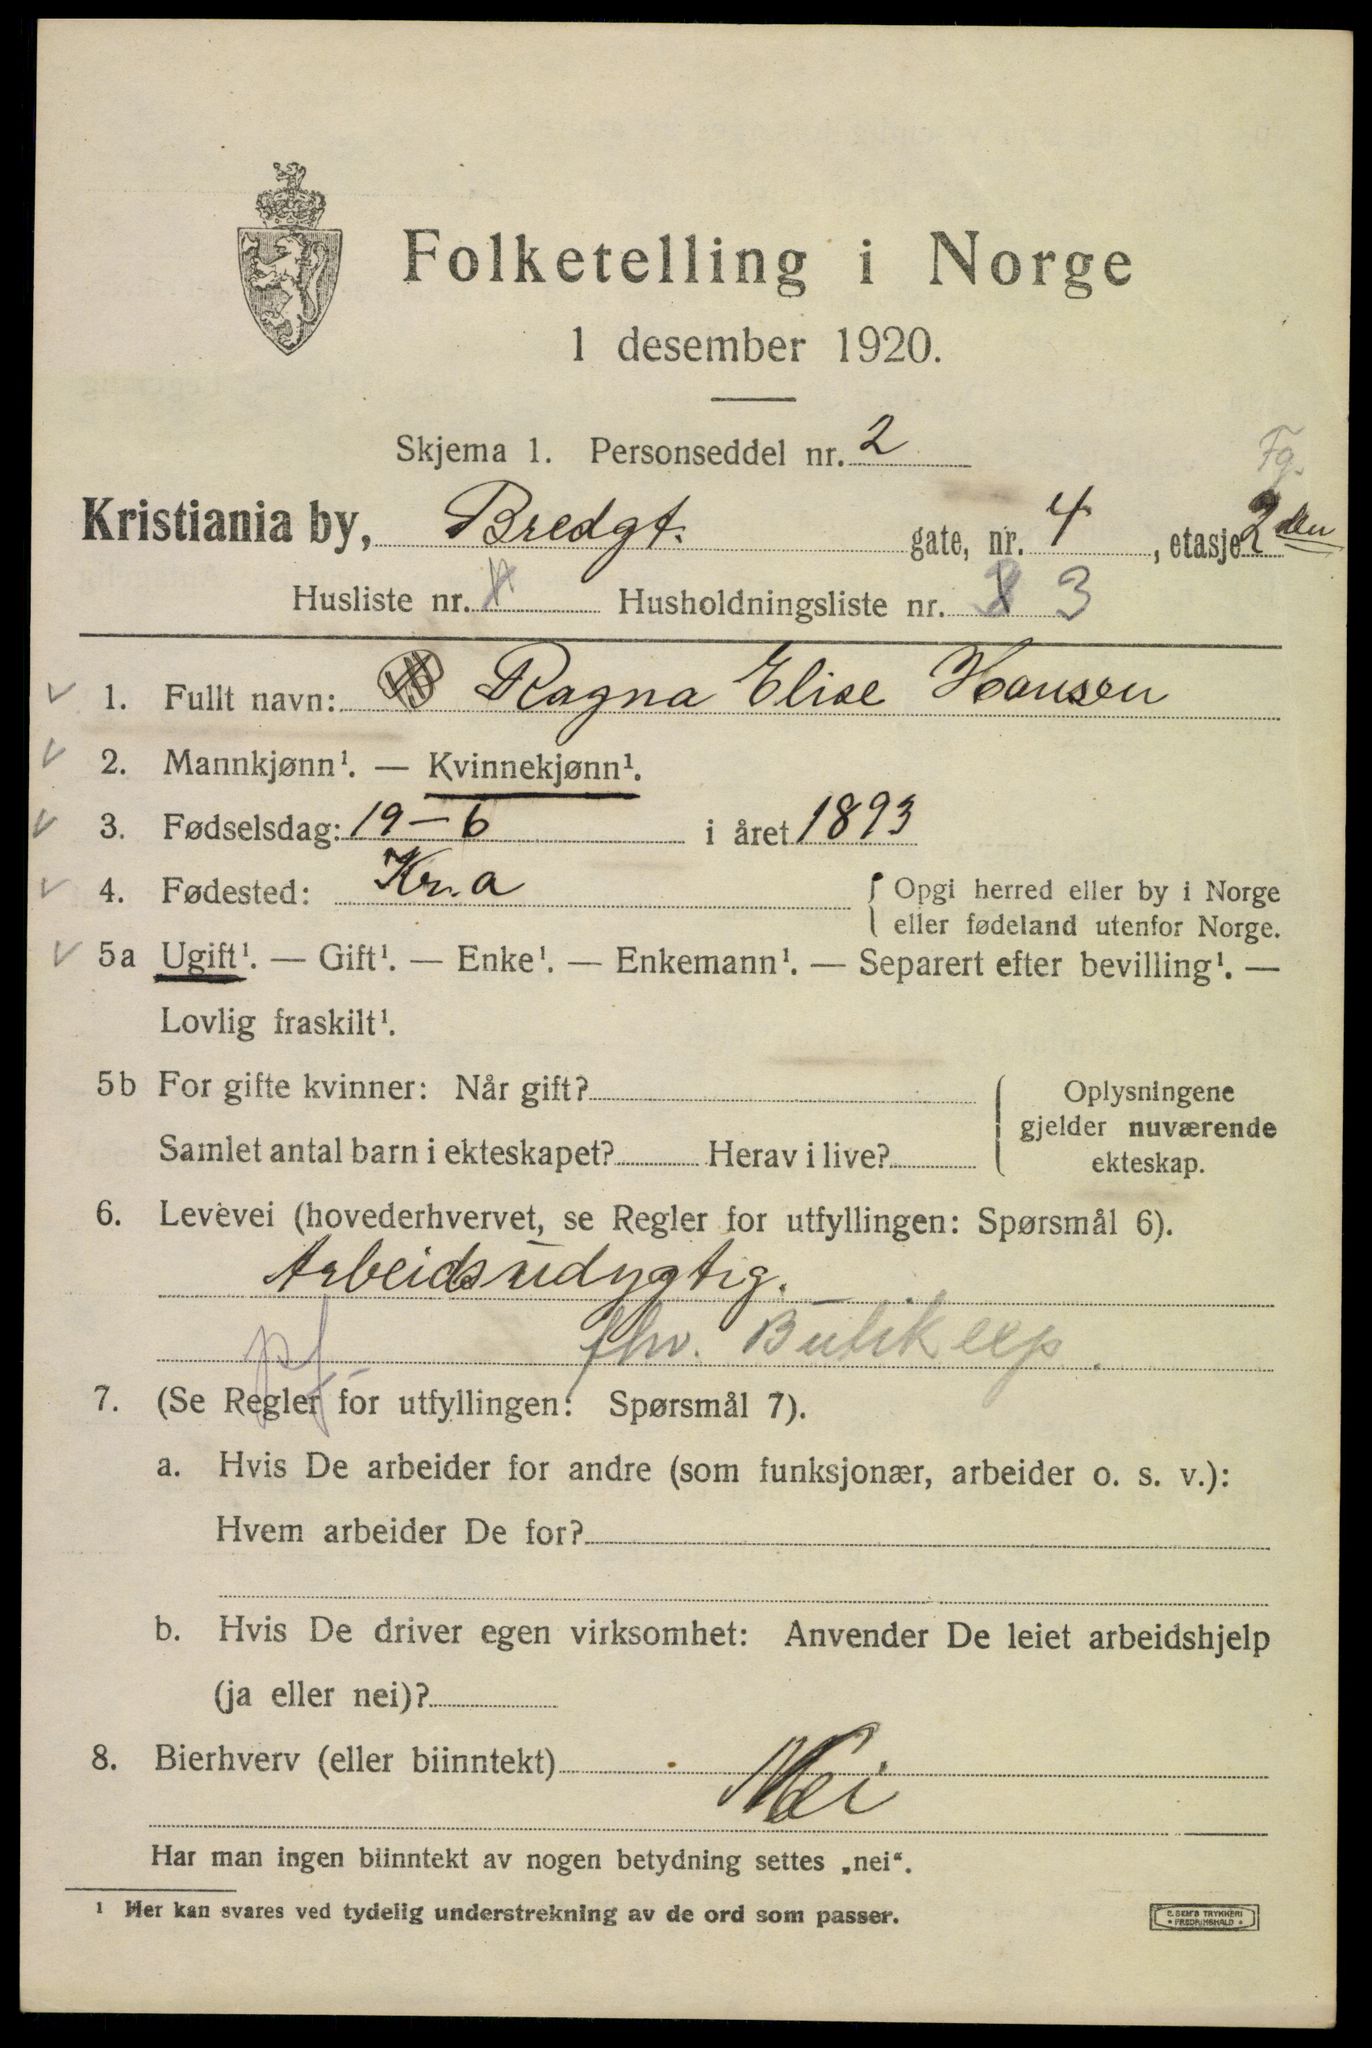 Folketelling i Norge
1 desember 1920.
Skjema 1. Personseddel nr. 2
Fg.
Kristiania by, Bredgt. gate, nr. 4, etasje 2den
Husliste nr. Husholdningsliste nr. 3
1. Fullt navn: Ragna Elise Hansen
2. Mannkjønn¹. — Kvinnekjønn¹.
3. Fødselsdag: 19–6 i året 1893
4. Fødested: Kr.a { Opgi herred eller by i Norge
eller fødeland utenfor Norge.
5a Ugift¹. — Gift¹. — Enke¹. — Enkemann¹. — Separert efter bevilling¹. —
Lovlig fraskilt¹.
5b For gifte kvinner: Når gift?
Samlet antal barn i ekteskapet? Herav i live?
Oplysningene
gjelder nuværende
ekteskap.
6. Levevei (hovederhvervet, se Regler for utfyllingen: Spørsmål 6).
Arbeidsudygtig.
fhv. Butikeksp.
7. (Se Regler for utfyllingen: Spørsmål 7).
a. Hvis De arbeider for andre (som funksjonær, arbeider o. s. v.):
Hvem arbeider De for?
b. Hvis De driver egen virksomhet: Anvender De leiet arbeidshjelp
(ja eller nei)?
8. Bierhverv (eller biinntekt)
Nei
Har man ingen biinntekt av nogen betydning settes „nei“.
¹ Her kan svares ved tydelig understrekning av de ord som passer.
E. SEM'S TRYKKERI
* FREDRIKSHALD *